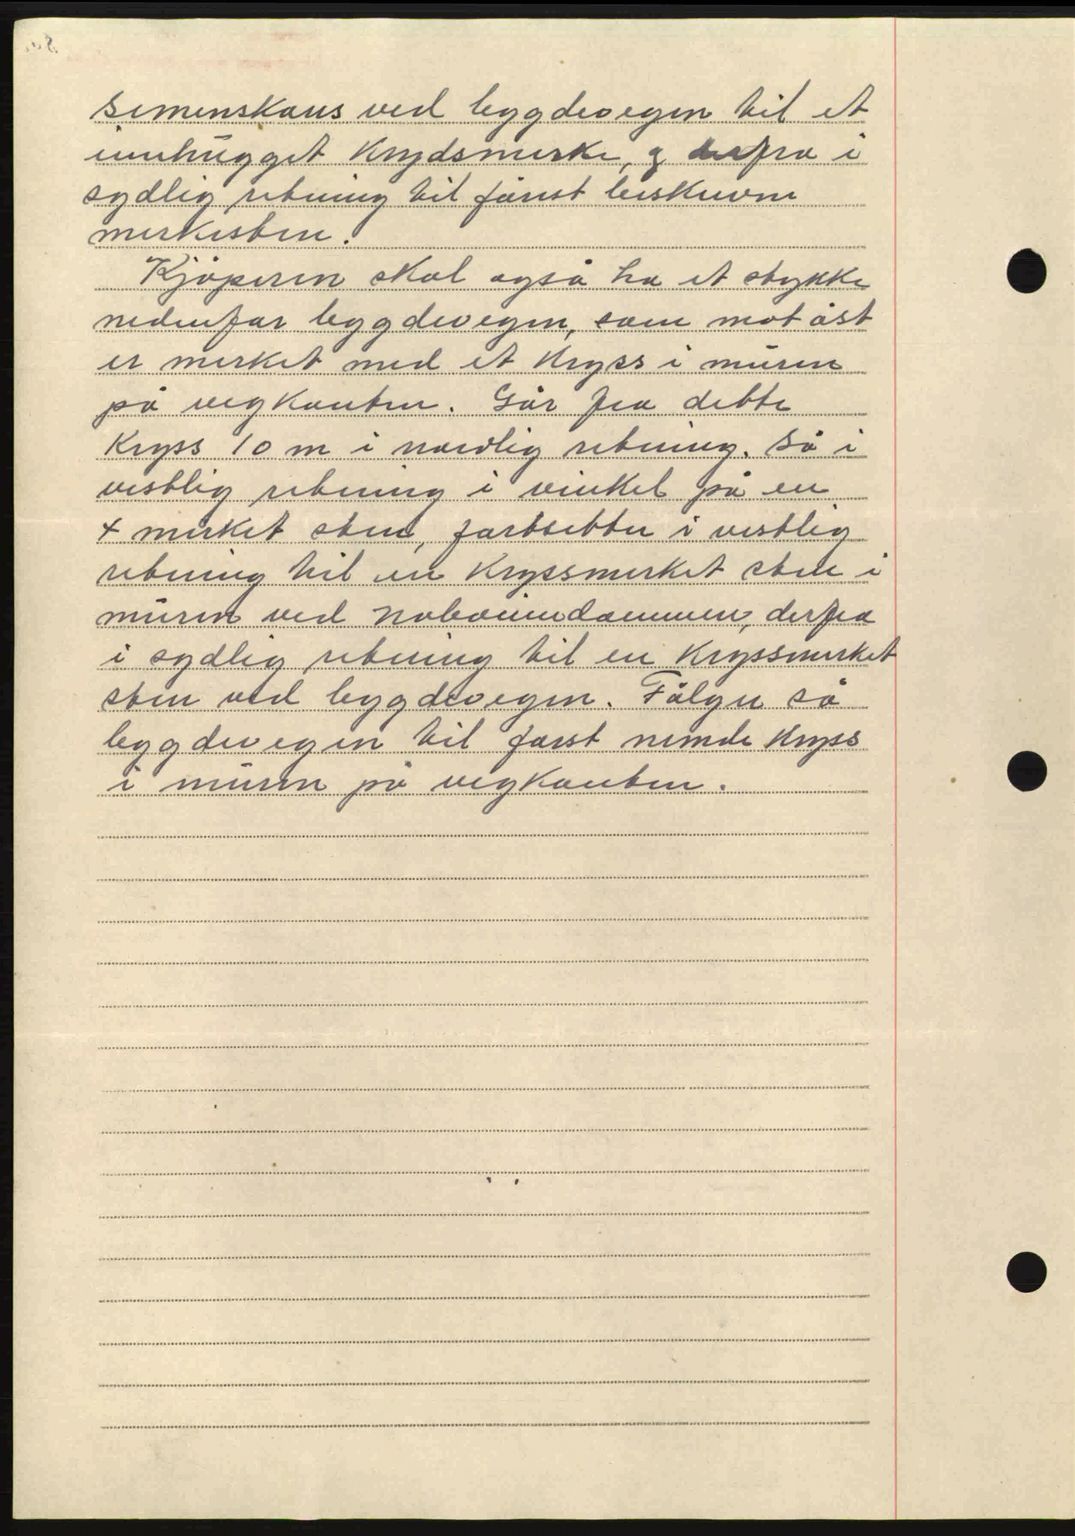 sementskans ved bygdevegen til et
innhugget Krydsmerke, og derfra i
sydlig retning til først beskrevne
merkesten.
Kjøperen skal også ha et stykke
nedenfor bygdevegen, som mot øst
er merket med et Kryss i muren
på vegkanten. Går fra dette
Kryss 10 m i nordlig retning. Så i
vestlig retning i vinkel på en
+ merket sten, fortsetter i vestlig
retning til en Kryssmerket sten i
muren ved naboeiendommen, derfra
i sydlig retning til en Kryssmerket
sten ved bygdevegen. Følger så
bygdevegen til først nevnte Kryss
i muren på vegkanten.